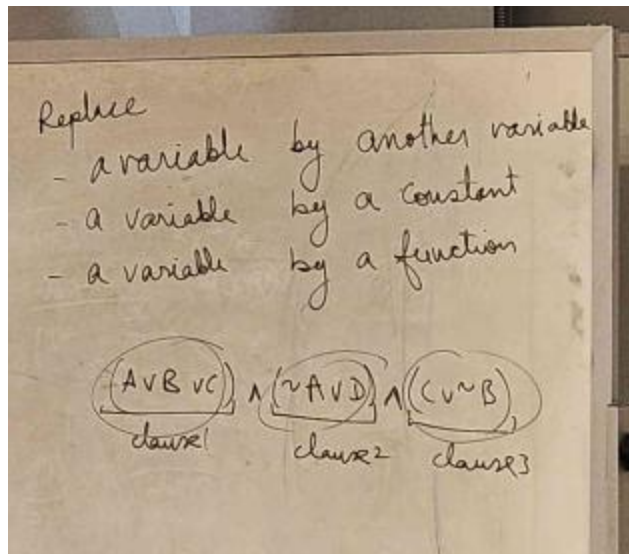 Replace
- a variable by another variable
- a variable by a constant
- a variable by a function
(A∨B∨C) ∧ (~A∨D) ∧ (C∨~B)
clause1 clause2 clause3